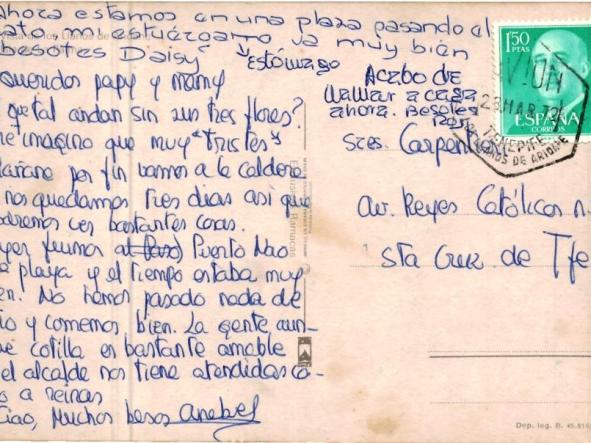 Ahora estamos en una plaza pasando el
rato, mi estuárgamo va muy bién
besotes Daisy "Estómago
Acabo de
llamar a casa
ahora. Besotes
Queridos papy y mamy
que tal andan sin sus tres flores?
me imagino que muy "tristes"
Mañana por fin vamos a la caldera
y nos quedamos tres dias así que
podremos ver bastantes cosas.
Ayer fuimos al Puerto Nao
de playa y el tiempo estaba muy
bien. No hemos pasado nada de
frio y comemos, bien. La gente aun-
que cotilla es bastante amable
y el alcalde nos tiene atendidas co-
mo a reinas
Ciao, Muchos besos Anabel
Sres. Carpen
Av. Reyes Católicos n.
Sta Cruz de Tfe
1,50
PTAS
ESPAÑA
CORREOS
AVION
TENERIFE
LLANOS DE ARIDANE
Dep. leg. B. 45.816